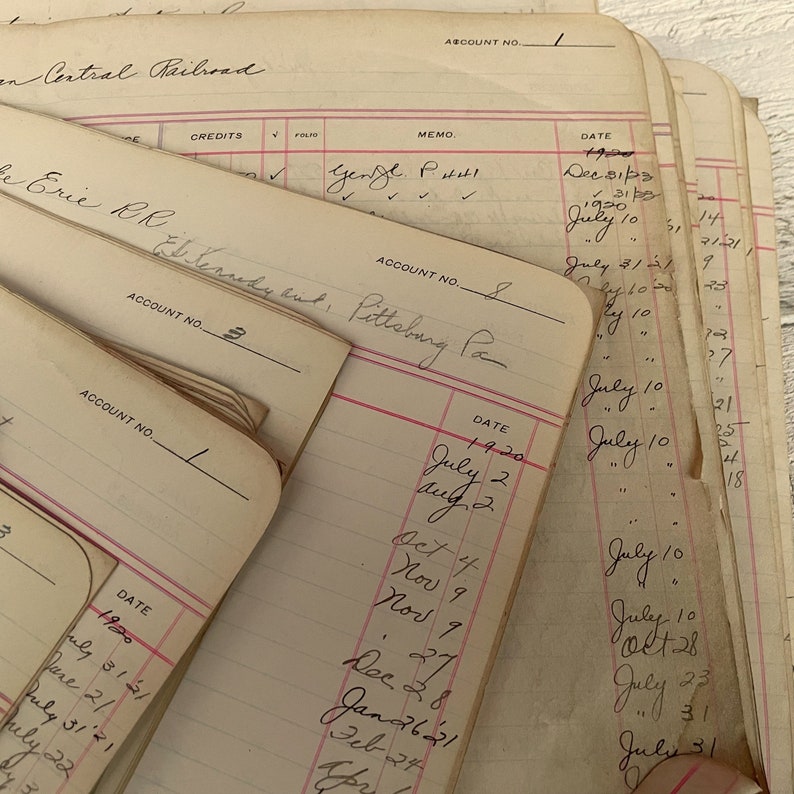 ACCOUNT NO. 1
Central Railroad
CREDITS √ FOLIO MEMO. DATE
1920
✓ P 441 Dec 31/23
✓ ✓ ✓ ✓ ✓ 31/23
1920
July 10
" "
July 31 '21
July 10 20
July 10
" "
July 10
" "
July 10
" "
" "
July 10
" "
July 10
Oct 28
July 23
" 31
July 31
14
21 '21
9
23
"
22
27
"
21
25
4
18
Erie RR.
Ed Kennedy and, Pittsburg Pa
ACCOUNT NO. 8
DATE
1920
July 2
Aug 2
Oct 4
Nov 9
Nov 9
" 27
Dec 28
Jan 26 '21
Feb 24
Apr 1
ACCOUNT NO. 3
ACCOUNT NO. 1
DATE
1920
July 31 '21
June 21
July 31 '21
July 22
3
3